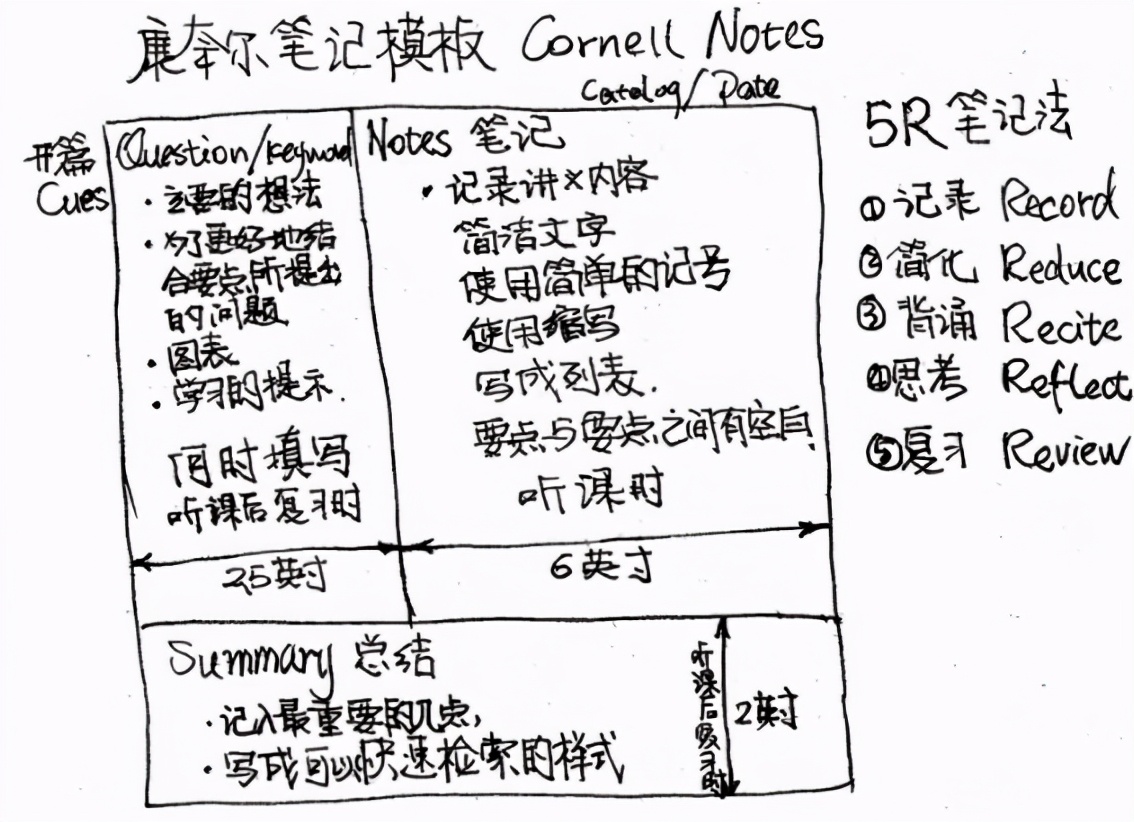 康奈尔笔记模板 Cornell Notes
Catalog/Date
开篇
Cues
Question/Keyword
·主要的想法
·为了更好地结
合要点所提出
的问题
·图表
·学习的提示.
何时填写
听课后复习时
2.5英寸
Notes 笔记
·记录讲义内容
简洁文字
使用简单的记号
使用缩写
写成列表.
要点与要点之间有空白
听课时
6英寸
Summary 总结
·记入最重要的几点,
·写成可以快速检索的样式
听课后复习时
2英寸
5R 笔记法
①记录 Record
②简化 Reduce
③背诵 Recite
④思考 Reflect
⑤复习 Review